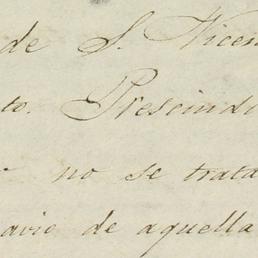 de S. Vicen
to. Prescindi
no se trata
avio de aquella